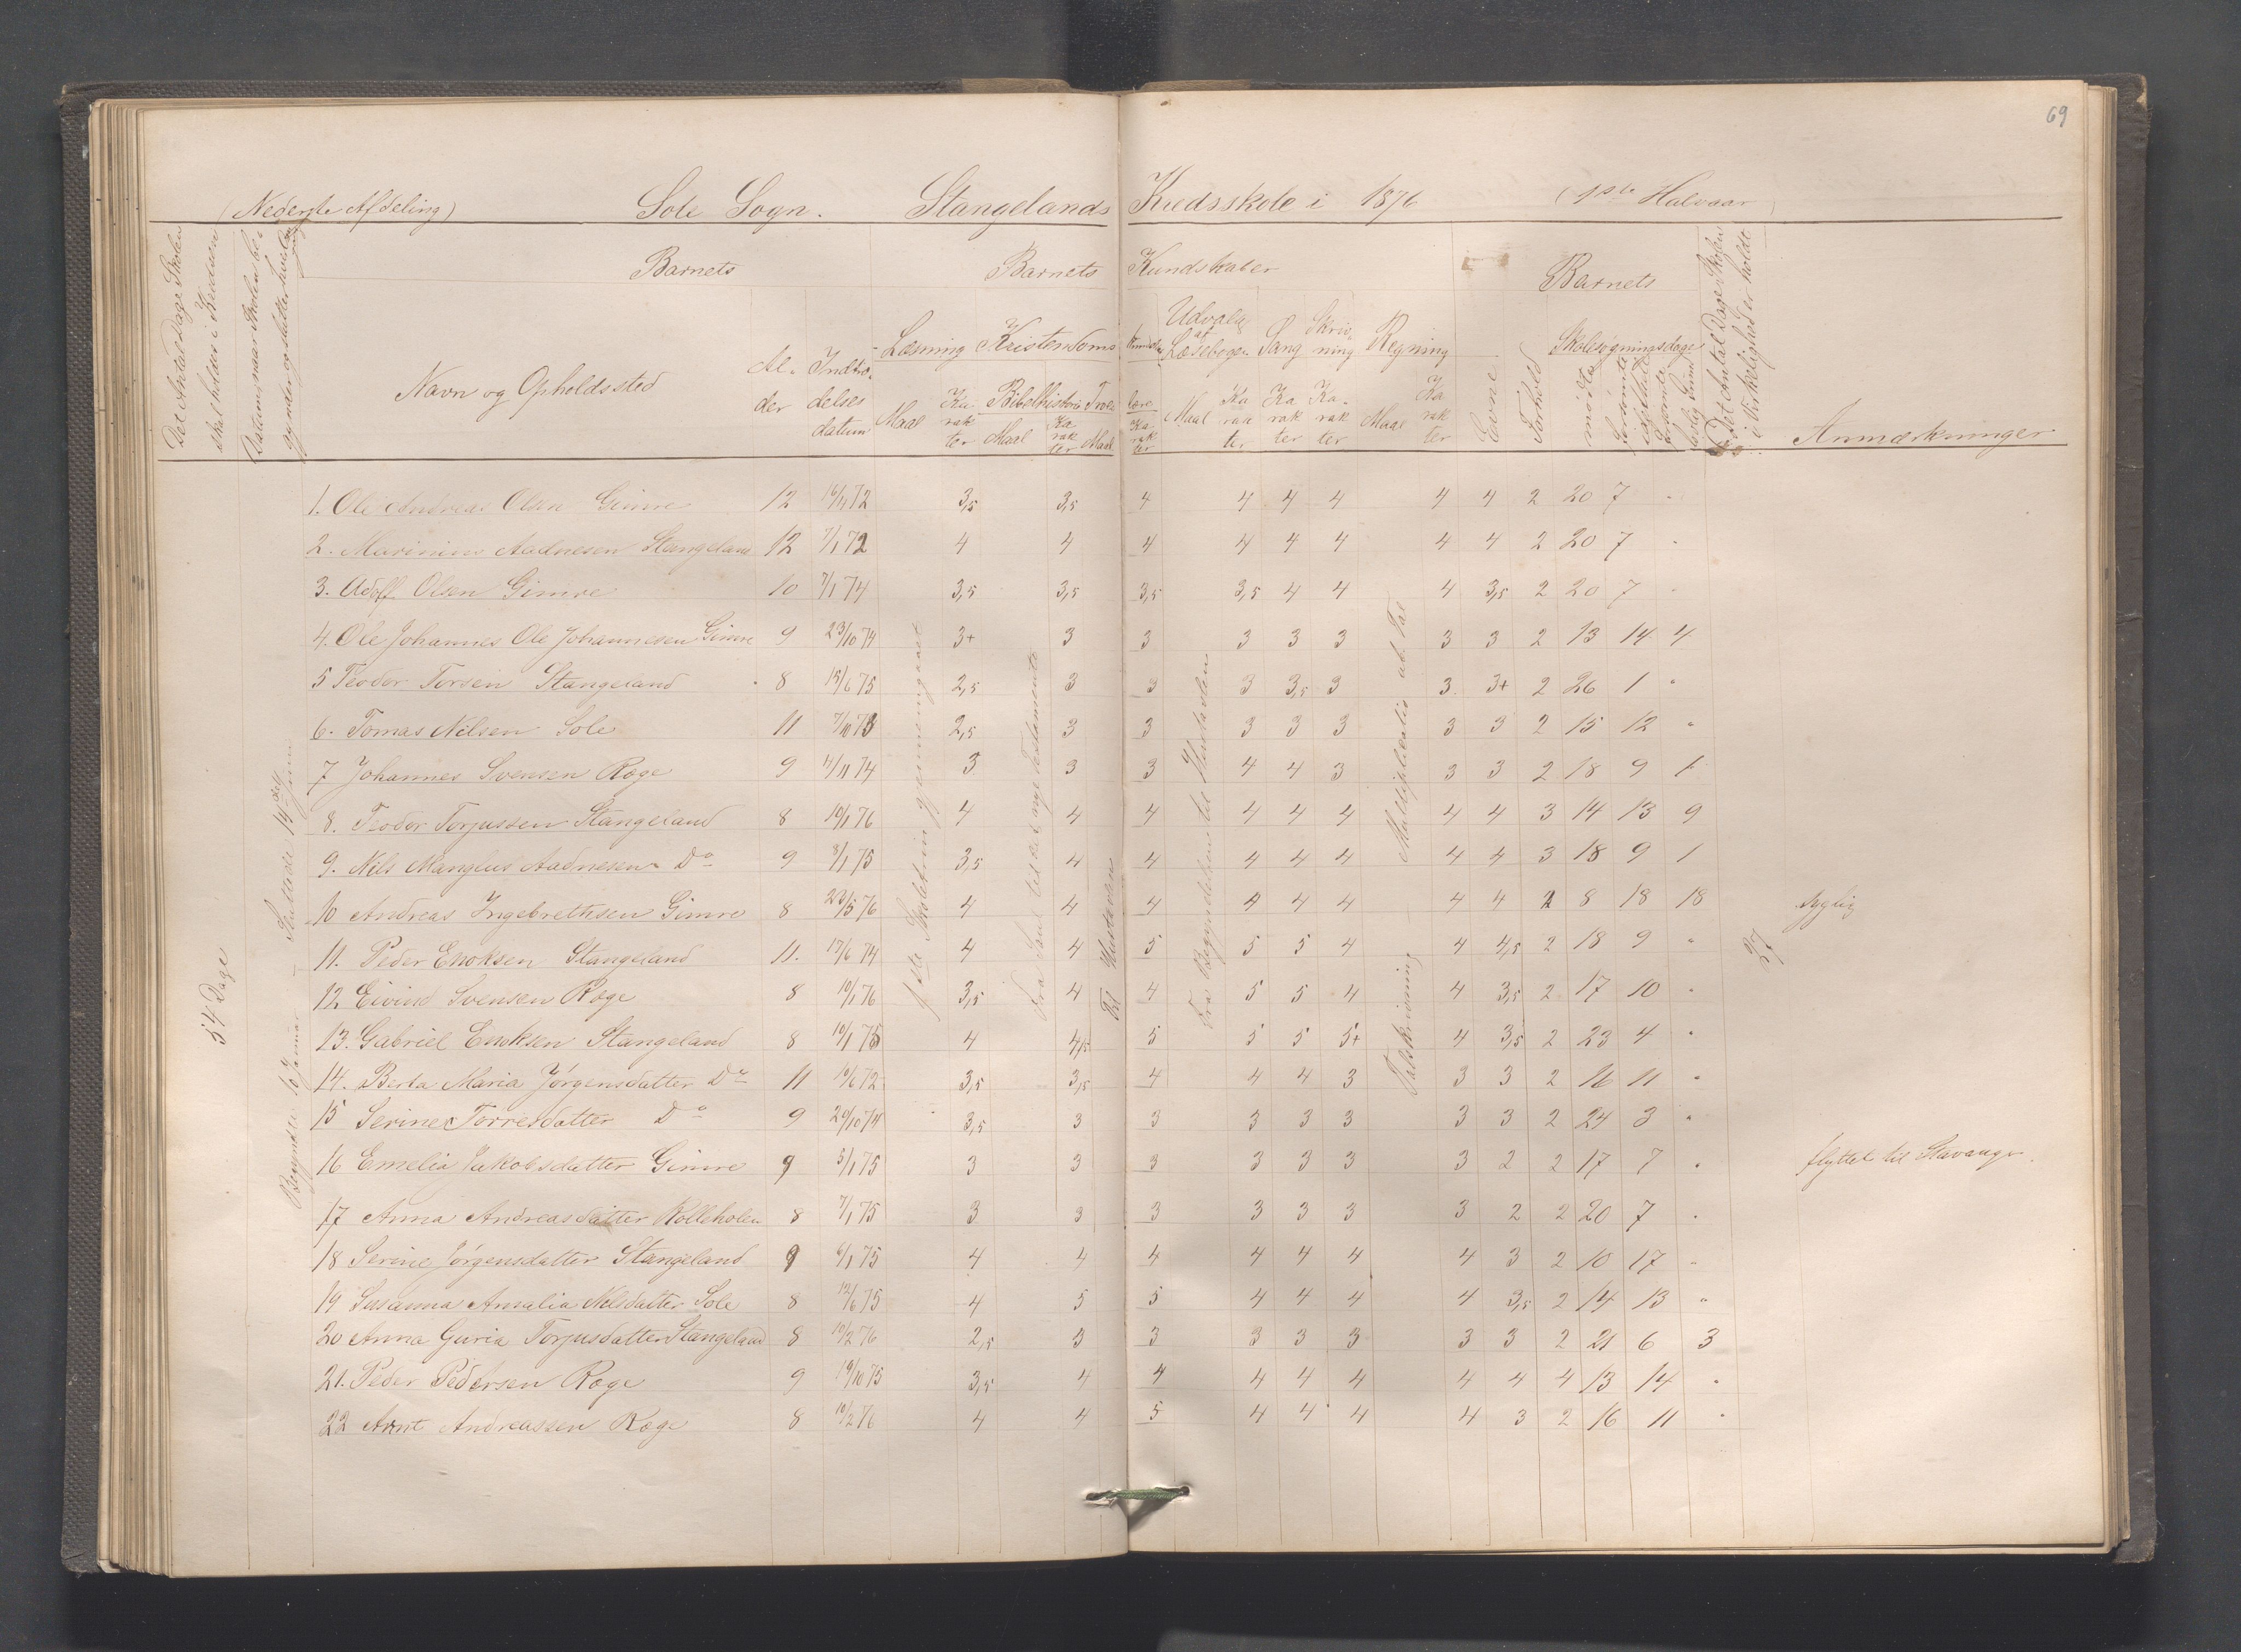 69
(Nederste Afdeling) Sole Sogn. Stangelands Kredsskole i 1876 (1ste Halvaar)
Det Antal Dage Skolen skal holdes i Kredsen
Datum naar Skolen begynder og slutter
Barnets
Barnets Kundskaber
Barnets
Navn og Opholdssted
Alder
Indtrædelses datum
Læsning
Kristendomskundskab
Udvalg af Læsebogen
Sang
Skrivning
Regning
Maal Karakter
Bibelhistorie
Maal Karakter
Troeslære
Maal Karakter
Maal Karakter
Karakter
Karakter
Maal Karakter
Evne
Forhold
Skolesøgningsdage
mødte
forsømte i det hele
forsømte af lovlig Grund
Det Antal Dage Skolen i Virkelighed er holdt
Anmærkninger
54 Dage
Begyndte 10 Januar – Sluttede 14de Juni
1ste Tosletrin gjennemgaaet
Fra Saul til det nye Testamente
Til Udtoget
Fra Begyndelsen til
Talskrivning
Multiplication
27
1. Ole Andreas Olsen Gimre 12 16/11 72 3,5 3,5 4 4 4 4 4 4 2 20 7 "
2. Marinius Aadnesen Stangeland 12 7/1 72 4 4 4 4 4 4 4 4 2 20 7 "
3. Adolf Olsen Gimre 10 7/1 74 3,5 3,5 3,5 3,5 4 4 4 3,5 2 20 7 "
4. Ole Johannes Ole Johannesen Gimre 9 23/10 74 3+ 3 3 3 3 3 3 3 2 13 14 4
5 Teodor Torsen Stangeland 8 15/6 75 2,5 3 3 3 3,5 3 3 3+ 2 26 1 "
6. Tomas Nilsen Sole 11 7/10 73 2,5 3 3 3 3 3 3 3 2 15 12 "
7 Johannes Svensen Røge 9 4/11 74 3 3 3 4 4 3 3 3 2 18 9 1
8. Teodor Torjussen Stangeland 8 10/1 76 4 4 4 4 4 4 4 4 3 14 13 9
9. Nils Manglus Aadnesen Do 9 8/1 75 3,5 4 4 4 4 4 4 4 3 18 9 1
10 Andreas Ingebrethsen Gimre 8 23/5 76 4 4 4 4 4 4 4 4 2 8 18 18 Syglig
11. Peder Enoksen Stangeland 11. 17/6 74 4 4 5 5 5 4 4 4,5 2 18 9 "
12. Eivind Svensen Røge 8 10/1 76 3,5 4 4 5 5 4 4 3,5 2 17 10 "
13. Gabriel Enoksen Stangeland 8 10/1 75 4 4,5 5 5 5 5+ 4 3,5 2 23 4 "
14. Berta Maria Jørgensdatter Do 11 10/6 72 3,5 3,5 4 4 4 3 3 3 2 16 11 "
15 Serine Torresdatter Do 9 29/10 74 3,5 3 3 3 3 3 3 3 2 24 3 "
16 Emelia Jakobsdatter Gimre 9 5/1 75 3 3 3 3 3 3 3 2 2 17 7 " flyttet til Stavanger.
17 Anna Andreasdatter Kolleholen 8 7/1 75 3 3 3 3 3 3 3 2 2 20 7 "
18 Serine Jørgensdatter Stangeland 9 6/1 75 4 4 4 4 4 4 4 3 2 10 17 "
19 Susanna Amalia Nilsdatter Sole 8 12/6 75 4 5 5 4 4 4 4 3,5 2 14 13 "
20 Anna Guria Torjusdatter Stangeland 8 10/2 76 2,5 3 3 3 3 3 3 3 2 21 6 3
21. Peder Pedersen Røge 9 19/10 75 3,5 4 4 4 4 4 4 4 4 13 14 "
22 Arnt Andreassen Røge 8 10/2 76 4 4 5 4 4 4 4 3 2 16 11 "